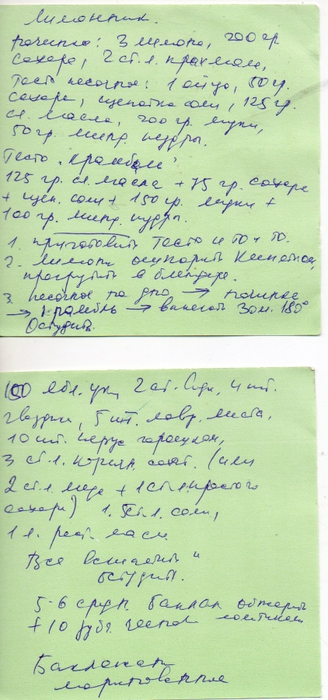 Лимонник.
Начинка: 3 лимона, 200 гр.
сахара, 2 ст. л. крахмала,
Тесто песочное: 1 яйцо, 50 гр.
сахара, щепотка соли, 125 гр.
сл. масла, 200 гр. муки,
50 гр. минд. пудры.
Тесто "крамбль"
125 гр. сл. масла + 75 гр. сахара
+ щеп. соли + 150 гр. муки +
100 гр. минд. пудры.
1. приготовить Тесто и то и то.
2. Лимоны ошпарить кипятком,
прокрутить в блендере.
3. песочное на дно → начинка
→ крамбль → выпекать 30 м. 180°
Остудить.
100 ябл. укс, 2 ст. 4 шт.
гвоздик, 5 шт. лавр. листа,
10 шт. перца горошком,
3 ст. л. (или
2 ст. л. меда + 1 ст. л. простого
сахара) 1.5 ст. л. соли,
1 л. раст. масл
Все вскипятить и
остудить.
5-6 средн. баклаж обжарить
+ 10 зубч. чеснок
Баклажан
маринованные